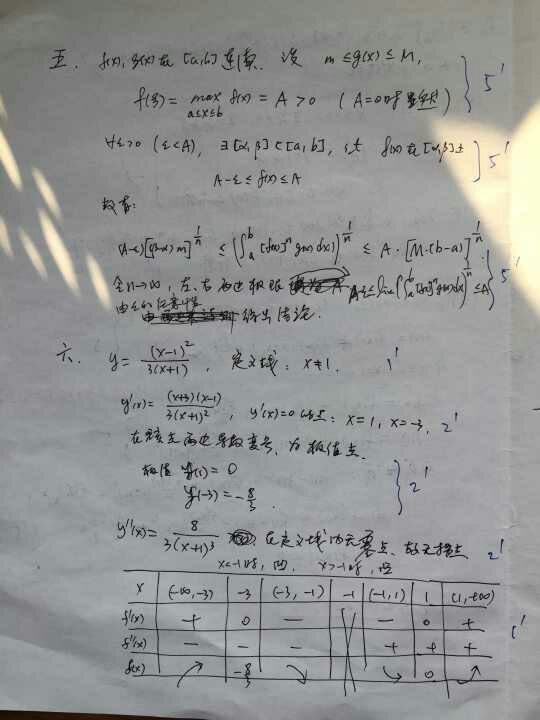 五. f(x), g(x)在[a,b]连续. 设 m≤g(x)≤M,
f(ξ)= max f(x) = A>0 (A=0时显然) 5'
a≤x≤b
∀ε>0 (ε<A), ∃[α,β]⊂[a,b], s.t f(x)在[α,β]上
A-ε≤f(x)≤A 5'
故有:
(A-ε)[(β-α)m]^{1/n} ≤ (∫_a^b [f(x)]^n g(x)dx)^{1/n} ≤ A·[M·(b-a)]^{1/n}
令n→∞, 左、右两边取极限 A-ε≤lim(∫_a^b [f(x)]^n g(x)dx)^{1/n}≤A 5'
由ε的任意性
得出结论.
六. y= (x-1)^2/3(x+1), 定义域: x≠1. 1'
y'(x)= (x+3)(x-1)/3(x+1)^2, y'(x)=0 的点: x=1, x=-3, 2'
在该点两边导数变号, 为极值点.
极值 y(1)=0
y(-3)=-8/3. 2'
y''(x)= 8/3(x+1)^3 在定义域内无零点, 故无拐点 2'
x<-1时, 凹, x>-1时, 凸
x (-∞,-3) -3 (-3,-1) -1 (-1,1) 1 (1,+∞)
f'(x) + 0 - - 0 + 1'
f''(x) - - - + + +
f(x) ↗ -8/3 ↘ ↘ 0 ↗